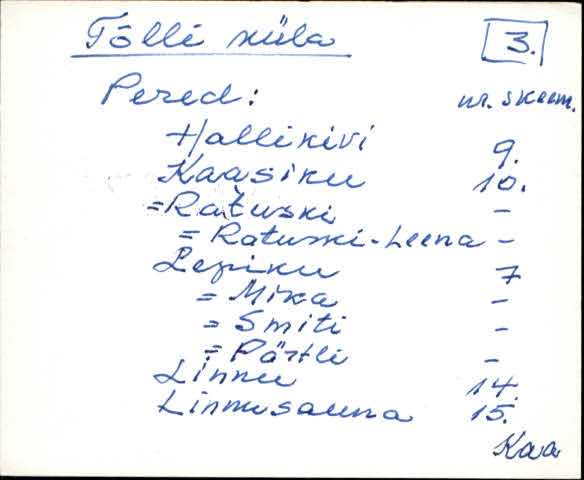 Tõlli küla 3.
Pered: nr. skeem.
Hallikivi 9.
Kaasiku 10.
= Ratuski -
= Ratuski-Leena -
Lepiku 7
= Mika -
= Smiti -
= Pärtli -
Linnu 14.
Linnusauna 15.
Kaa